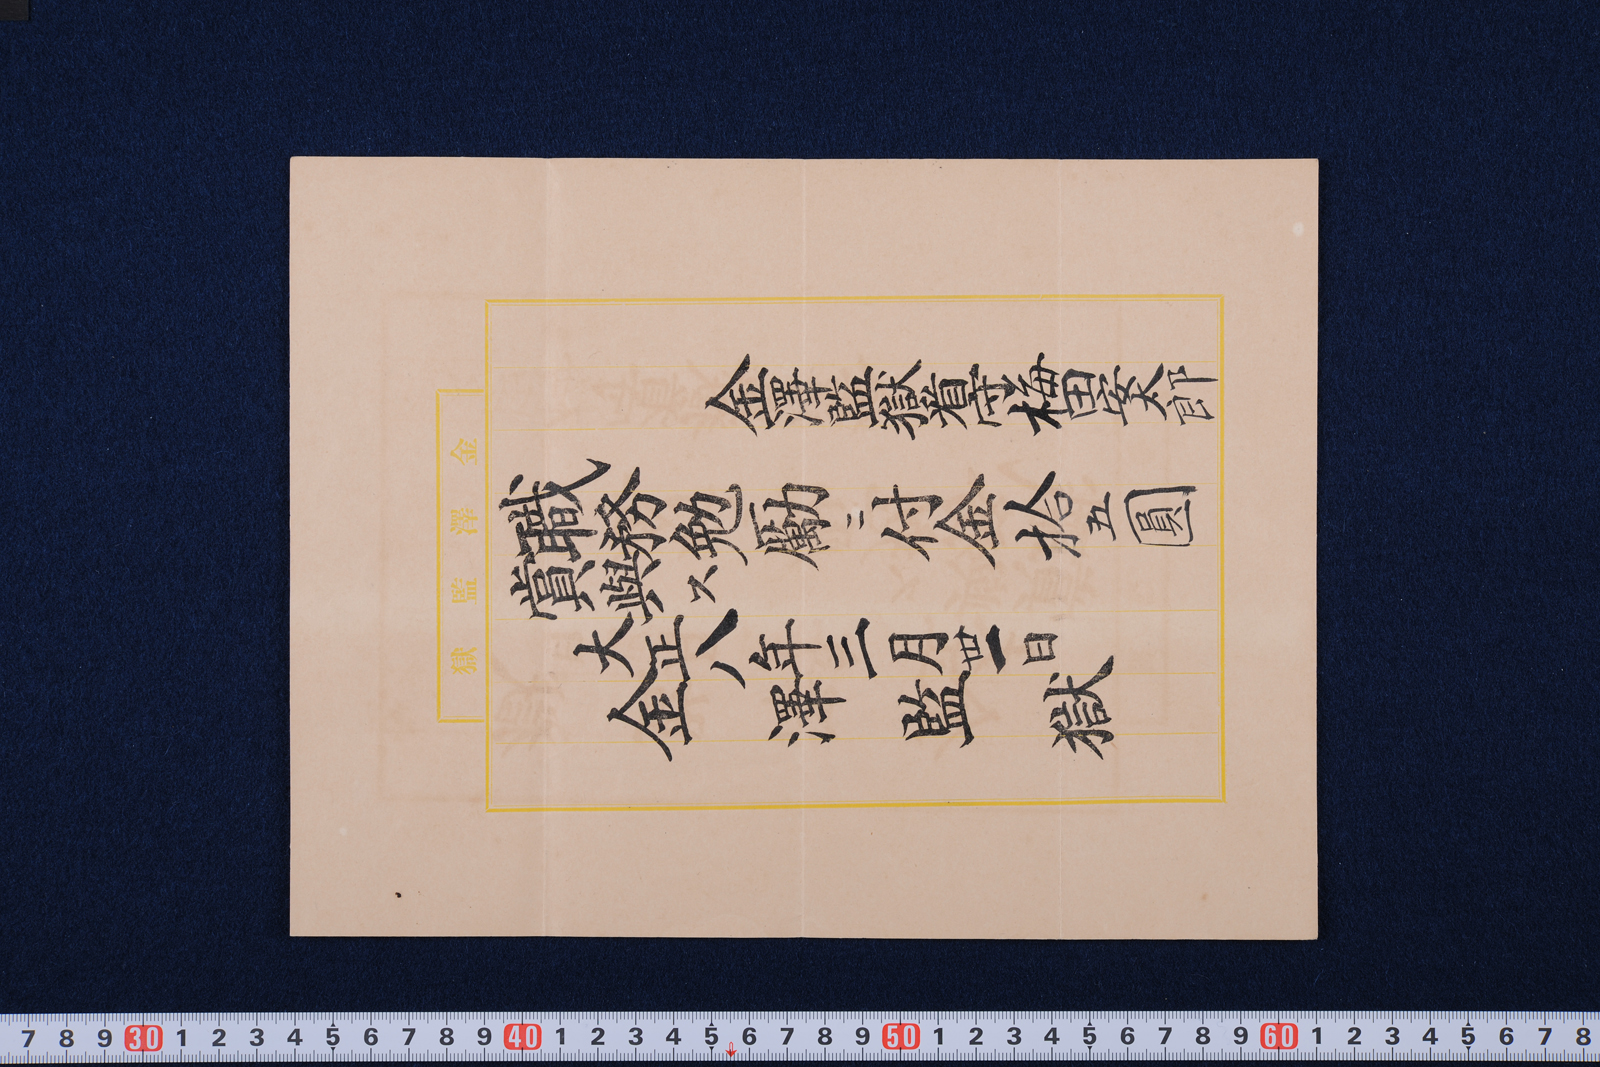 金澤監獄看守梅田安太郎
職務勉勵ニ付金拾五圓
賞與ス
大正八年三月卅一日
金澤監獄
金澤監獄
7 8 9 30 1 2 3 4 5 6 7 8 9 40 1 2 3 4 5 6 7 8 9 50 1 2 3 4 5 6 7 8 9 60 1 2 3 4 5 6 7 8